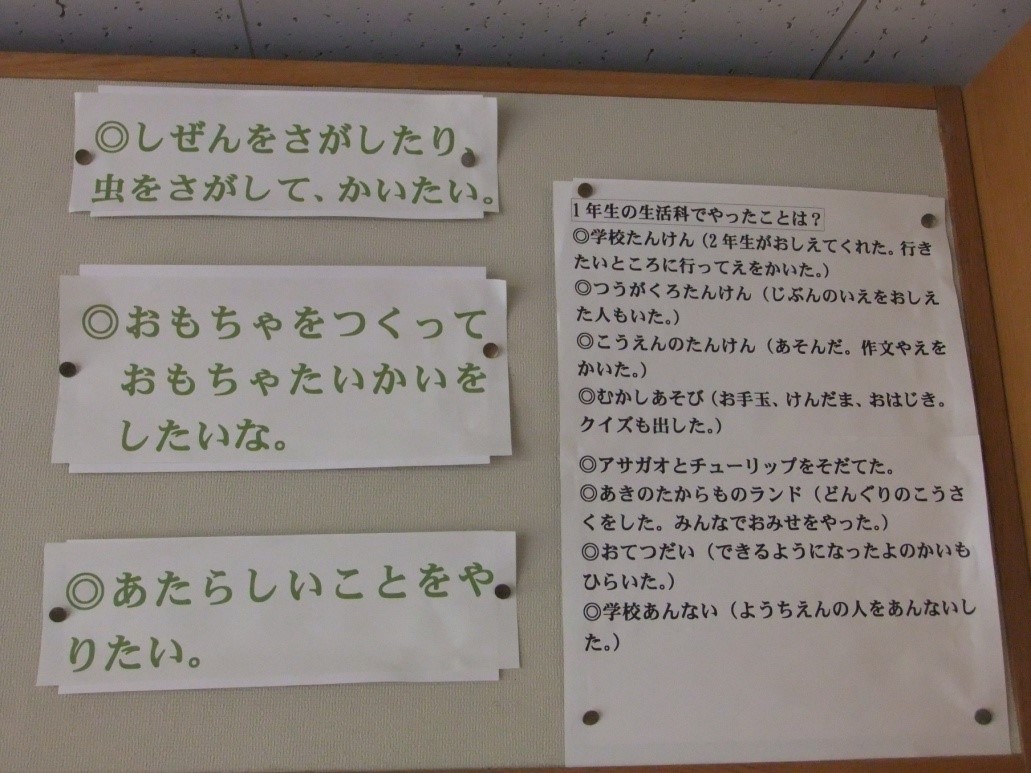 ◎しぜんをさがしたり、
虫をさがして、かいたい。
◎おもちゃをつくって
おもちゃたいかいを
したいな。
◎あたらしいことをや
りたい。
1年生の生活科でやったことは？
◎学校たんけん（2年生がおしえてくれた。行き
たいところに行ってえをかいた。）
◎つうがくろたんけん（じぶんのいえをおしえ
た人もいた。）
◎こうえんのたんけん（あそんだ。作文やえを
かいた。）
◎むかしあそび（お手玉、けんだま、おはじき。
クイズも出した。）
◎アサガオとチューリップをそだてた。
◎あきのたからものランド（どんぐりのこうさ
くをした。みんなでおみせをやった。）
◎おてつだい（できるようになったよのかいも
ひらいた。）
◎学校あんない（ようちえんの人をあんないし
た。）